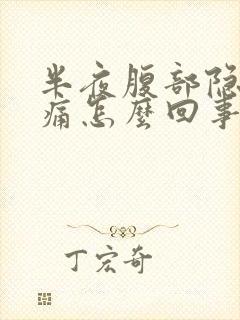 半夜腹部隐
痛怎麼回事
丁宏奇